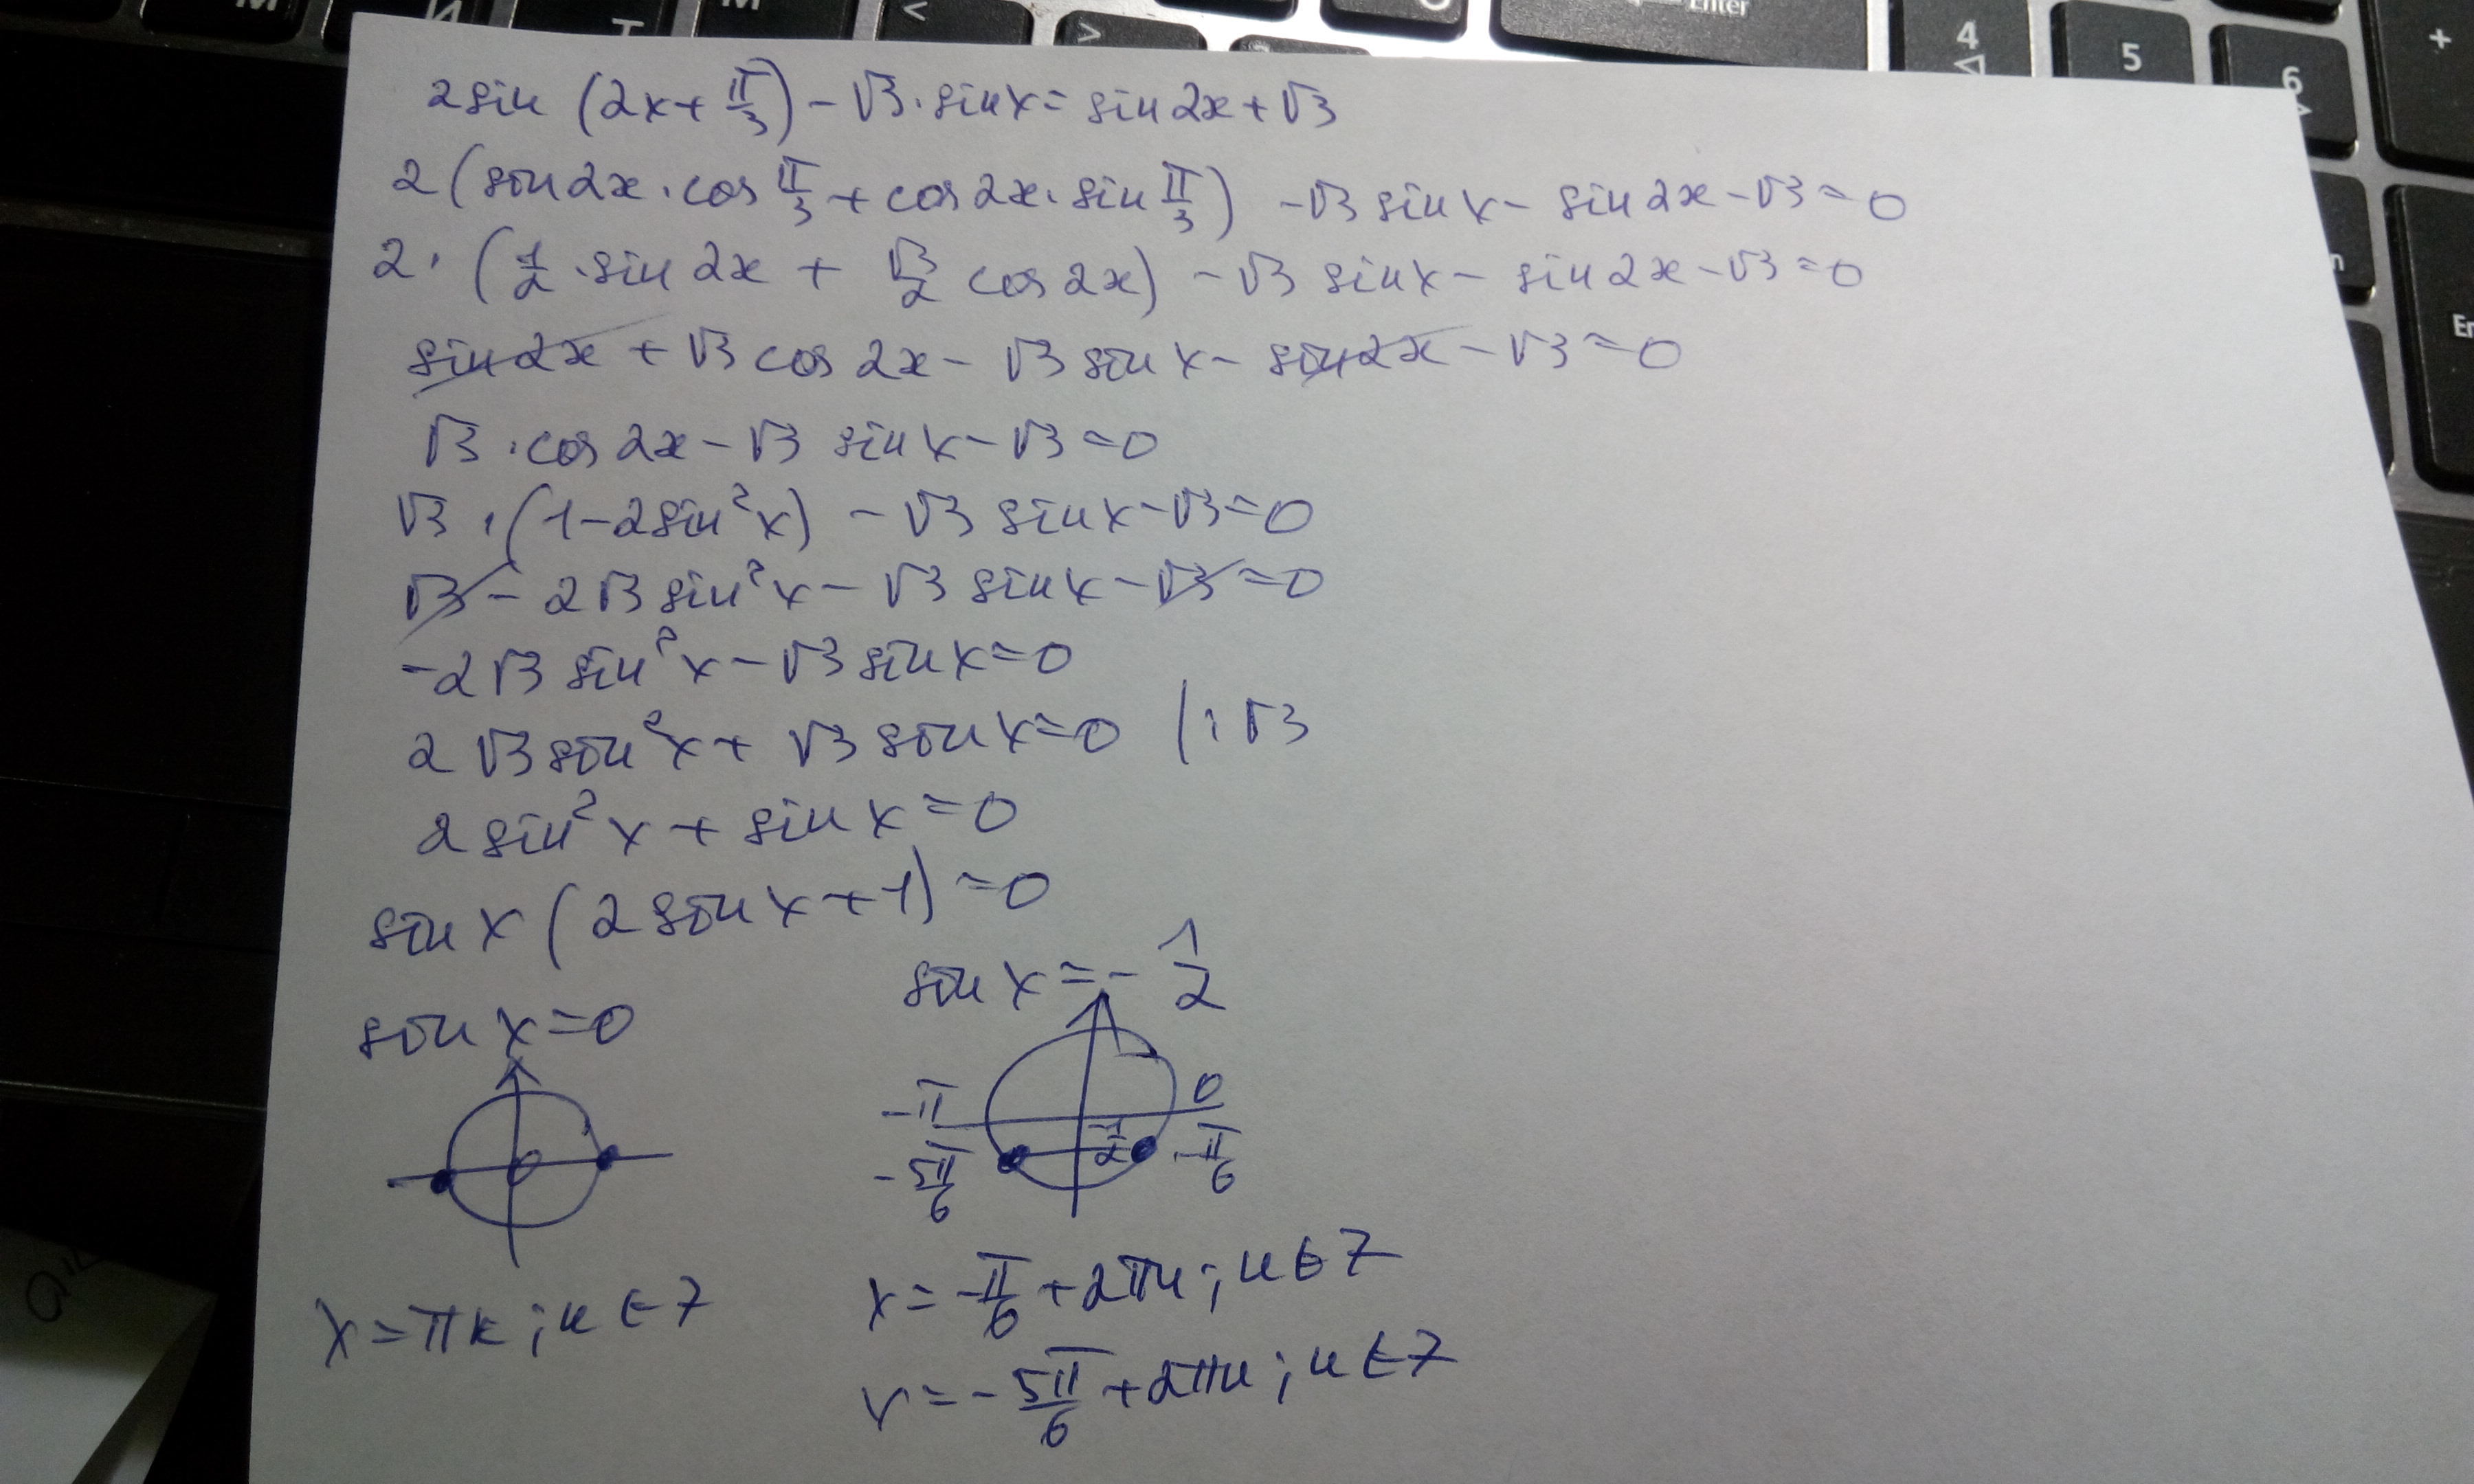 М И Т М < > Enter 4 5 6 +
2sin (2x+π/3)-√3·sinx=sin2x+√3
2(sin2x·cosπ/3+cos2x·sinπ/3) -√3sinx-sin2x-√3=0
2·(1/2·sin2x+√3/2cos2x)-√3sinx-sin2x-√3=0
sin2x+√3cos2x-√3sinx-sin2x-√3=0
√3·cos2x-√3sinx-√3=0
√3·(1-2sin²x)-√3sinx-√3=0
√3-2√3sin²x-√3sinx-√3=0
-2√3sin²x-√3sinx=0
2√3sin²x+√3sinx=0 |:√3
2sin²x+sinx=0
sinx(2sinx+1)=0
sinx=-1/2
sinx=0
-π 0
0 -1/2
-5π/6 -π/6
x=-π/6+2πn;n∈Z
x=πk;k∈Z
x=-5π/6+2πn;n∈Z